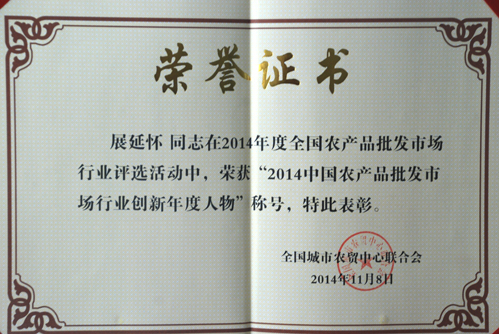 荣誉证书
展延怀 同志在2014年度全国农产品批发市场
行业评选活动中，荣获“2014中国农产品批发市
场行业创新年度人物”称号，特此表彰。
全国城市农贸中心联合会
2014年11月8日